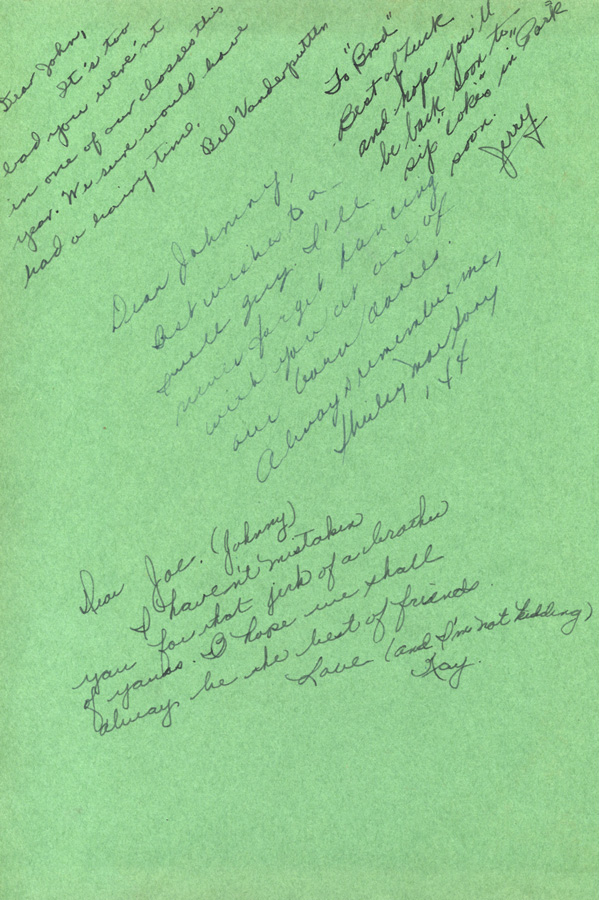 Dear John,
It's too
bad you were'nt
in one of our classes this
year. We sure would have
had a hairy time.
Bill Vanderputten
To "Brod"
Best of Luck
and hope you'll
be back soon to
sip "cokes" in Park
soon.
Jerry
Dear Johnny,
Best wishes to a
swell guy. I'll
never forget dancing
with you at one of
our barn dances.
Always remember me,
Shirley
'44
Dear Joe. (Johnny)
I haven't mistaken
you for that jerk of a brother
of yours. I hope we shall
always be the best of friends.
Love (and I'm not kidding)
Kay.